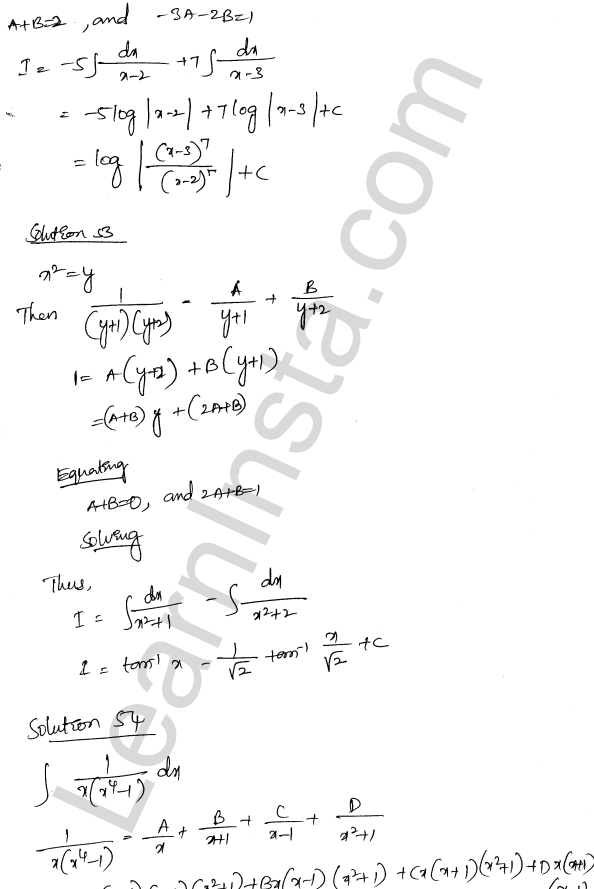 A+B=2 , and -3A-2B=1
I = -5∫ dx/(x-2) + 7∫ dx/(x-3)
= -5 log |x-2| + 7 log |x-3| + C
= log | (x-3)^7/(x-2)^5 | + C
Solution 53
x² = y
Then 1/((y+1)(y+2)) = A/(y+1) + B/(y+2)
1 = A(y+2) + B(y+1)
= (A+B) y + (2A+B)
Equating
A+B=0, and 2A+B=1
Solving
Thus,
I = ∫ dx/(x²+1) - ∫ dx/(x²+2)
I = tan⁻¹ x - 1/√2 tan⁻¹ x/√2 + C
Solution 54
∫ 1/(x(x⁴-1)) dx
1/(x(x⁴-1)) = A/x + B/(x+1) + C/(x-1) + D/(x²+1)
(x²+1) + Bx(x-1)(x²+1) + Cx(x+1)(x²+1) + Dx(x+1)
LearnInsta.com